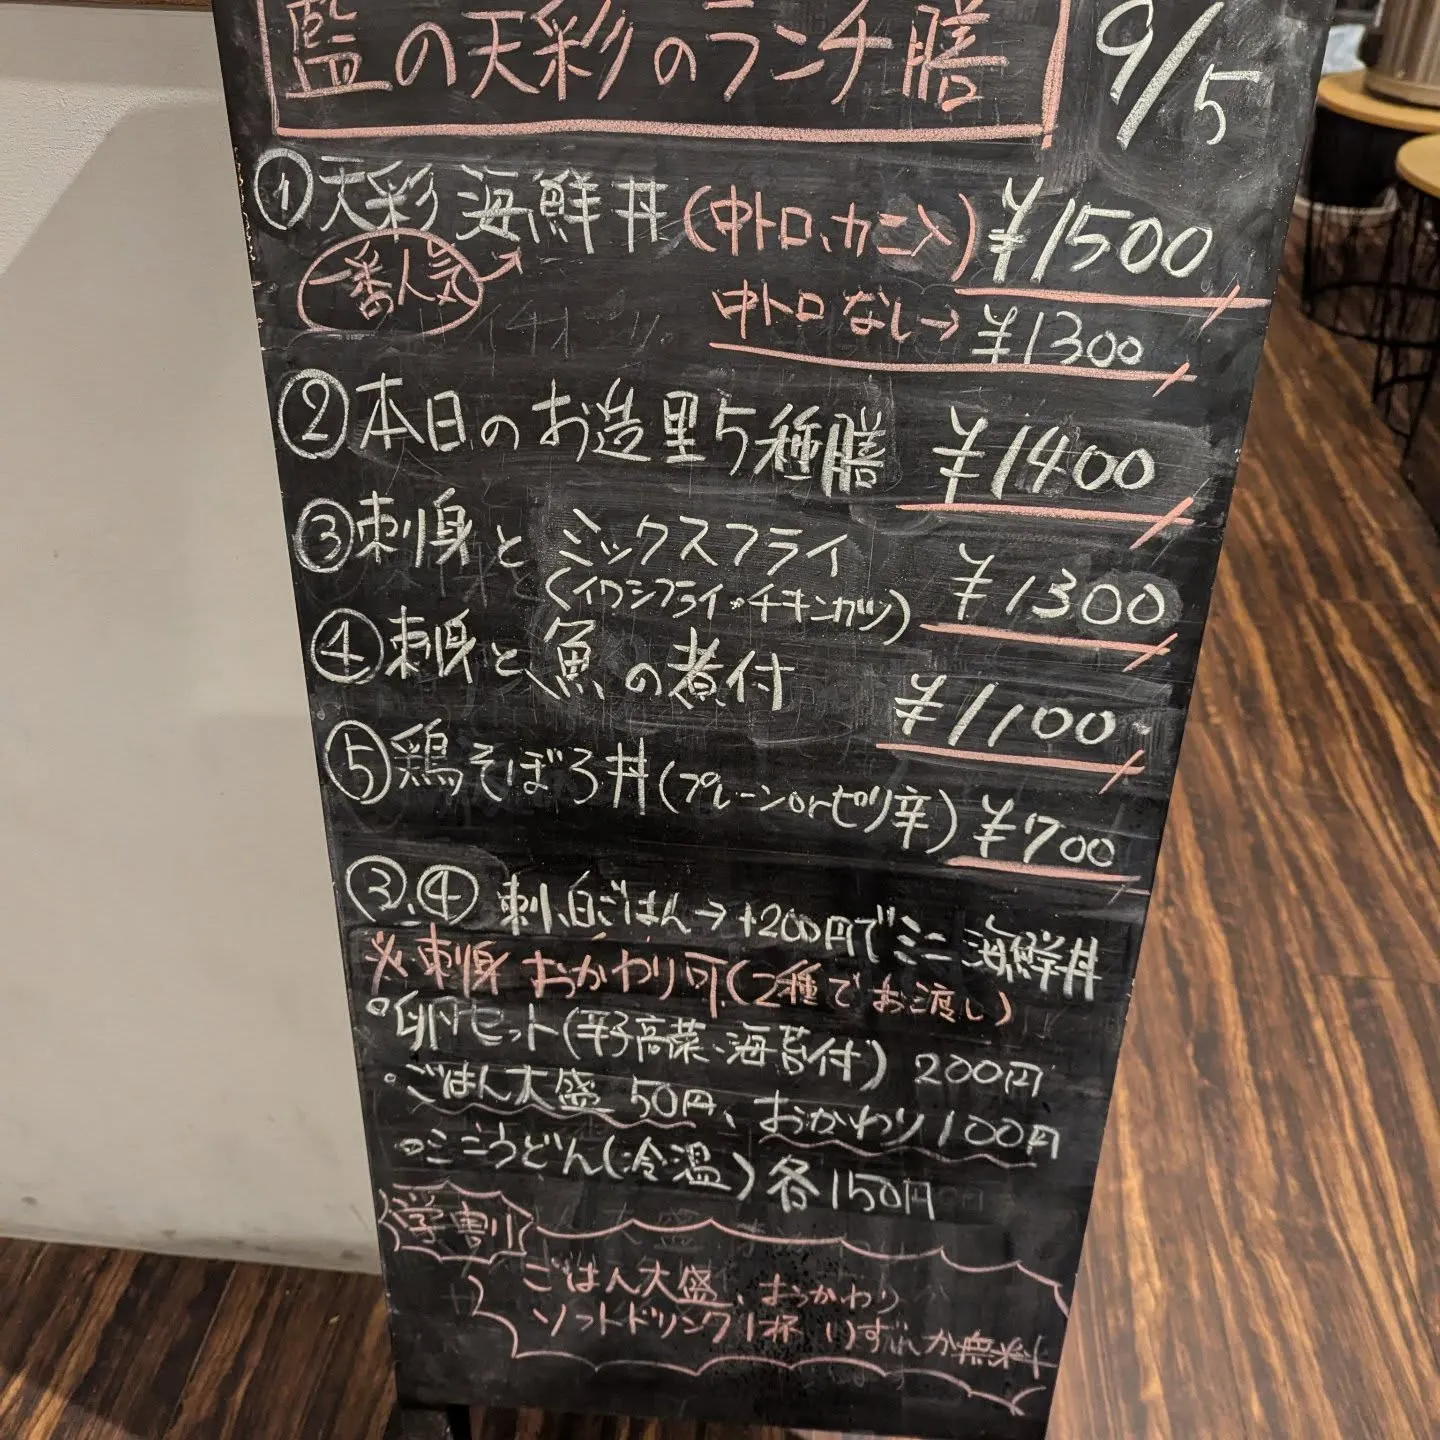 藍の天彩のランチ膳 9/5
①天彩海鮮丼(中トロ、カニ入) ¥1500
一番人気
中トロなし→ ¥1300
②本日のお造里5種膳 ¥1400
③刺身とミックスフライ
(イワシフライ・チキンカツ) ¥1300
④刺身と魚の煮付 ¥1100
⑤鶏そぼろ丼(プレーンorピリ辛) ¥700
③、④ 刺、白ごはん→+200円でミニ海鮮丼
※刺身おかわり可(2種でお渡し)
。卵セット(辛子高菜、海苔付) 200円
。ごはん大盛 50円、おかわり100円
。ミニうどん(冷温)各150円
学割
ごはん大盛、おかわり
ソフトドリンク1杯 いずれか無料